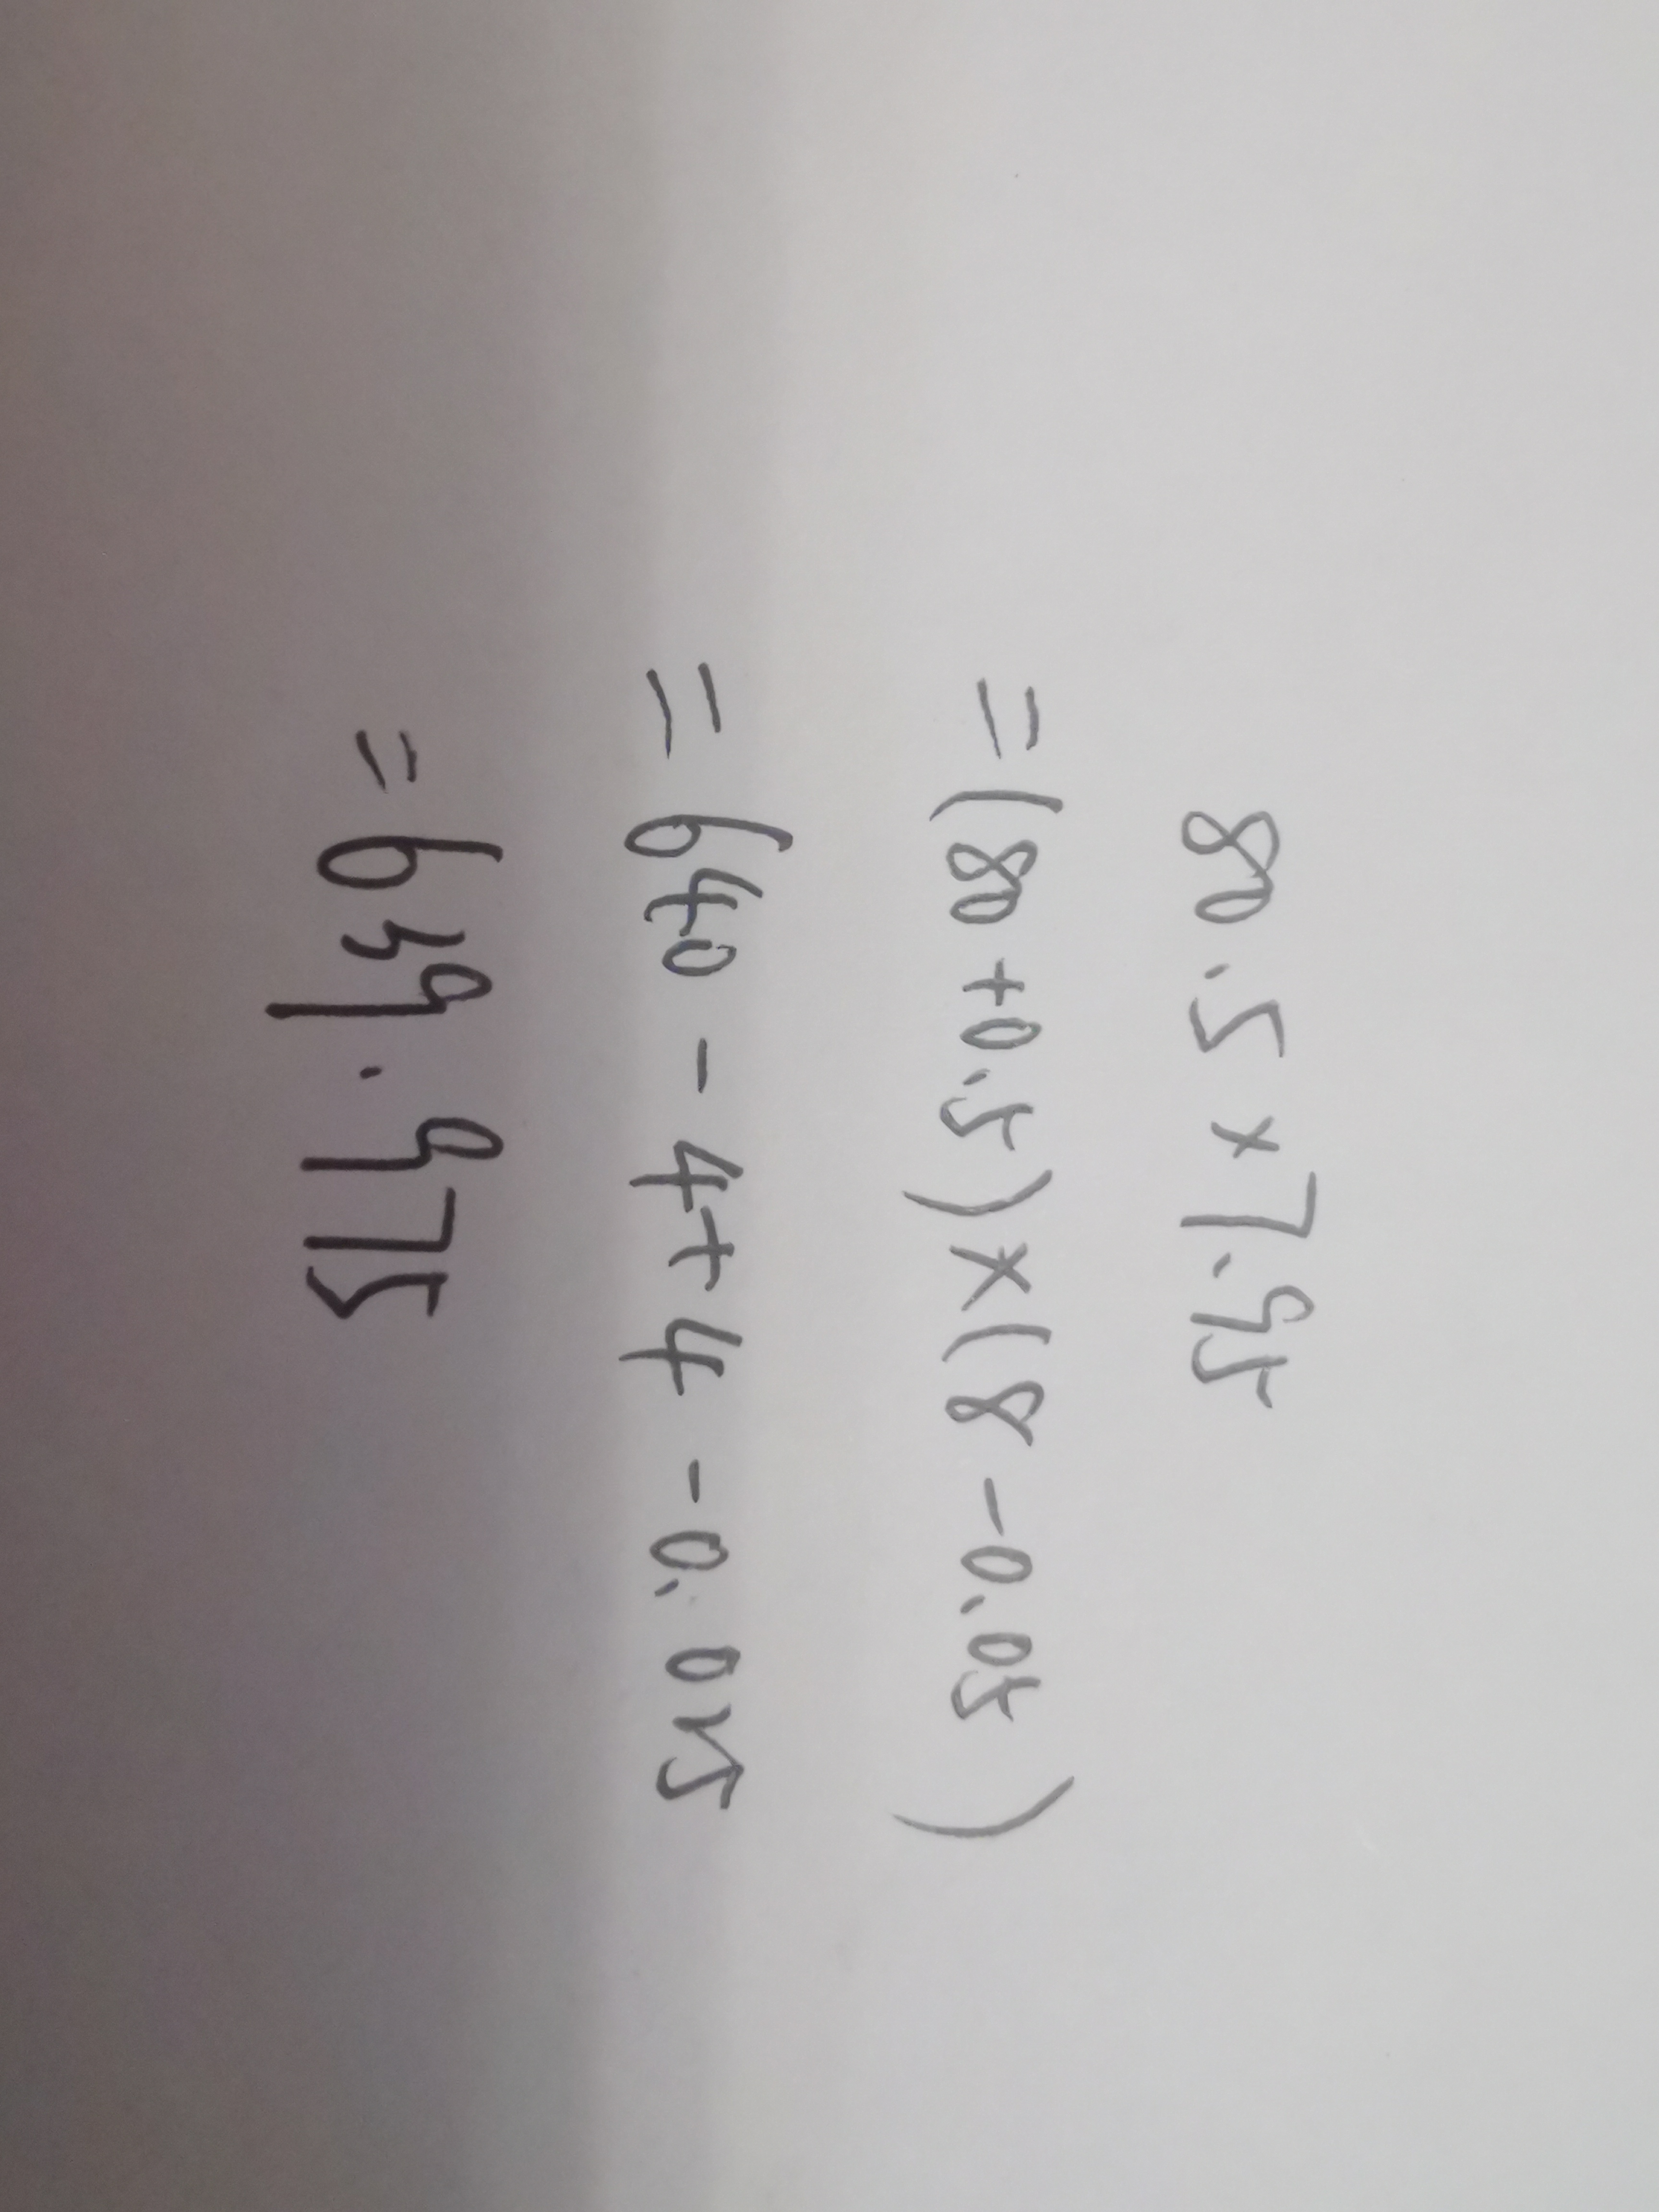 80.5 × 7.95
= (80 + 0.5) × (8 - 0.05)
= 640 - 4 + 4 - 0.025
= 639.975